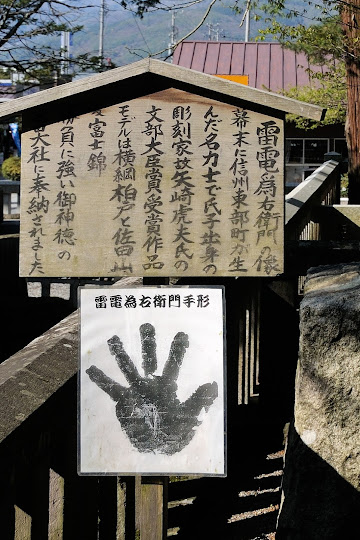 雷電為右衛門の像
幕末に信州東部町が生
んだ名力士で氏子出身の
彫刻家故矢崎虎夫氏の
文部大臣賞受賞作品
モデルは横綱柏戸佐田山
富士錦
勝負に強い御神徳の
大社に奉納されました
雷電為右衛門手形